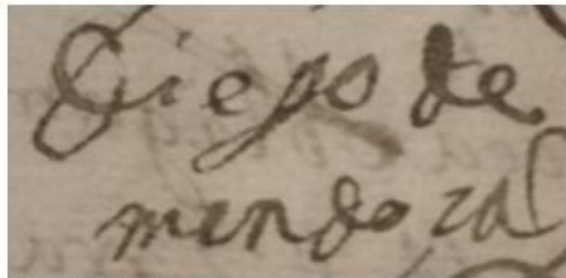 Diego de
mendoza